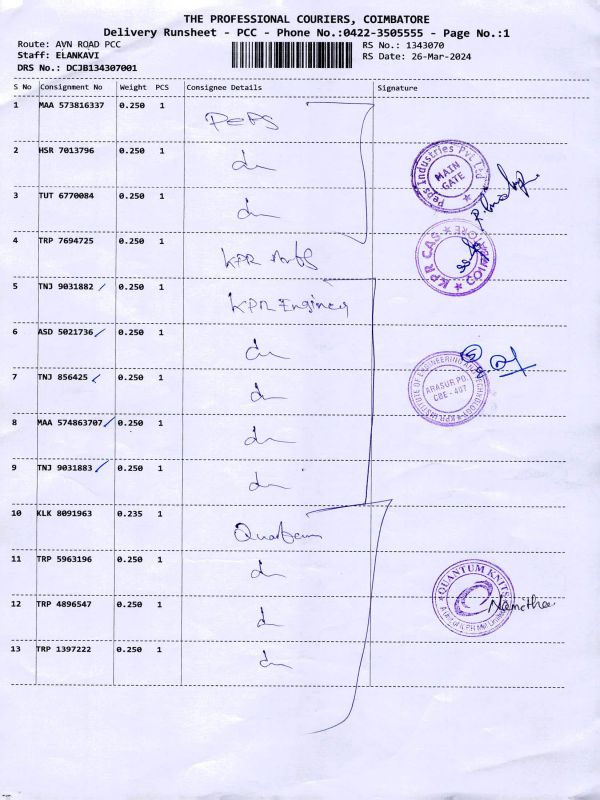 THE PROFESSIONAL COURIERS, COIMBATORE
Delivery Runsheet - PCC - Phone No.:0422-3505555 - Page No.:1
Route: AVN ROAD PCC RS No.: 1343070
Staff: ELANKAVI RS Date: 26-Mar-2024
DRS No.: DCJB134307001
S No Consignment No Weight PCS Consignee Details Signature
1 MAA 573816337 0.250 1 PePS
2 HSR 7013796 0.250 1 do
Peps Industries Pvt Ltd
MAIN GATE
3 TUT 6770084 0.250 1 do
4 TRP 7694725 0.250 1 KPR Arts
KPR CAS COIMBATORE
5 TNJ 9031882 0.250 1 KPR Engineer
6 ASD 5021736 0.250 1 do
7 TNJ 856425 0.250 1 do
KPR INSTITUTE OF ENGINEERING AND TECHNOLOGY
ARASUR PO.
CBE - 407
8 MAA 574863707 0.250 1 do
9 TNJ 9031883 0.250 1 do
10 KLK 8091963 0.235 1 Quantum
11 TRP 5963196 0.250 1 do
QUANTUM KNITS
12 TRP 4896547 0.250 1 do
Namitha
13 TRP 1397222 0.250 1 do